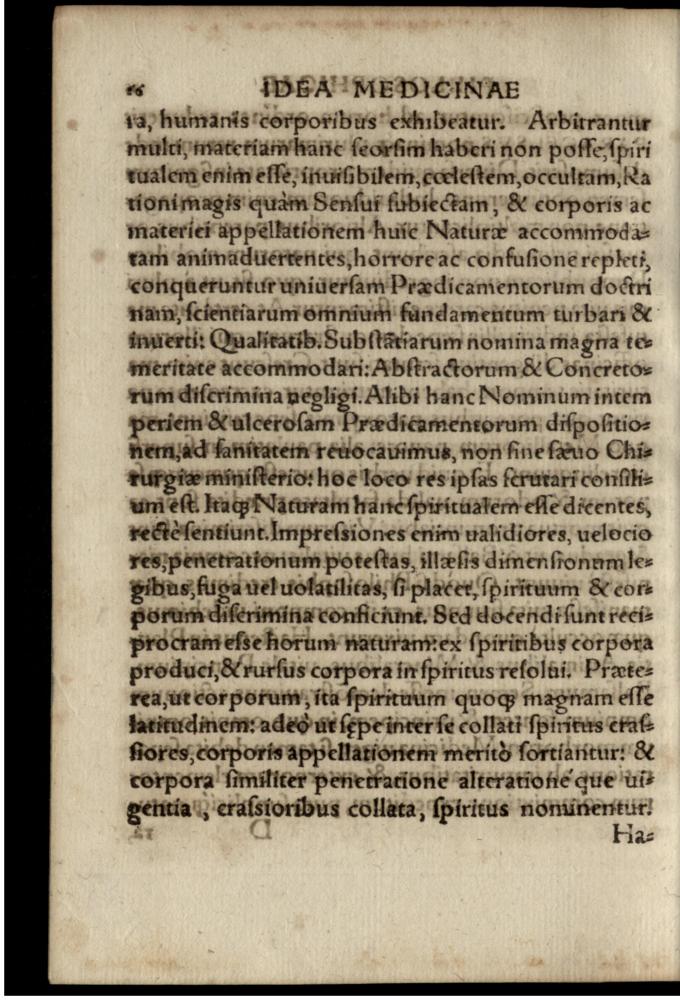 66 IDEA MEDICINAE
ra, humanis corporibus exhibeatur. Arbitrantur
multi, materiam hanc seorsim haberi non posse, spiri
tualem enim esse, inuisibilem, cœlestem, occultam, Ra
tioni magis quàm Sensui subiectam, & corporis ac
materiei appellationem huic Naturæ accommoda⸗
tam animaduertentes, horrore ac confusione repleti,
conqueruntur uniuersam Prædicamentorum doctri
nam, scientiarum omnium fundamentum turbari &
inuerti: Qualitatib. Substãtiarum nomina magna te⸗
meritate accommodari: Abstractorum & Concreto⸗
rum discrimina negligi. Alibi hanc Nominum intem
periem & ulcerosam Prædicamentorum dispositio⸗
nem, ad sanitatem reuocauimus, non sine sæuo Chi⸗
rurgiæ ministerio: hoc loco res ipsas scrutari consili⸗
um est. Itaqꝫ Naturam hanc spiritualem esse dicentes,
rectè sentiunt. Impressiones enim ualidiores, uelocio
res, penetrationum potestas, illæsis dimensionum le⸗
gibus, fuga uel uolatilitas, si placet, spirituum & cor⸗
porum discrimina conficiunt. Sed docendi sunt reci⸗
procram esse horum naturam: ex spiritibus corpora
produci, & rursus corpora in spiritus resolui. Præte⸗
rea, ut corporum, ita spirituum quoqꝫ magnam esse
latitudinem: adeò ut sępe inter se collati spiritus cras⸗
siores, corporis appellationem meritò sortiantur: &
corpora similiter penetratione alterationéque ui⸗
gentia, crassioribus collata, spiritus nominentur.
Ha⸗